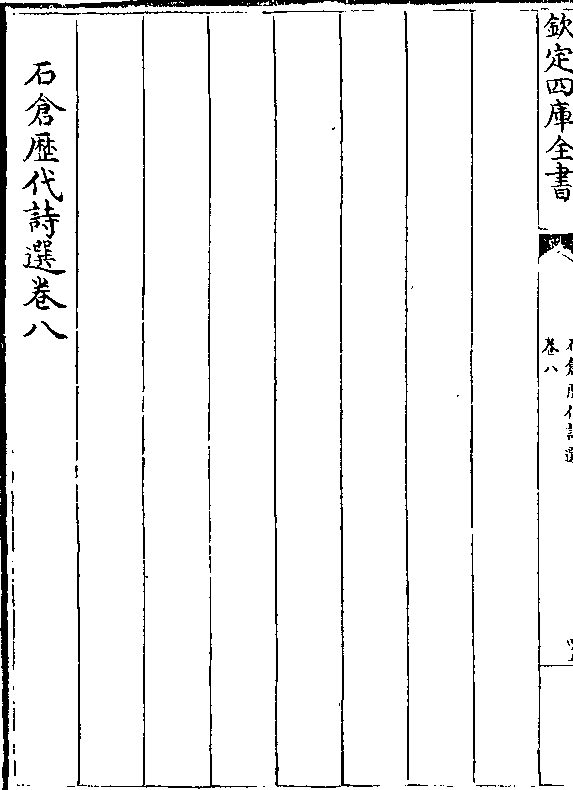 欽定四庫全書
石倉歷代詩選
卷八
石倉歷代詩選卷八